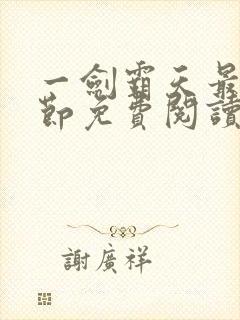 一劍霸天最
節免費閱讀
謝廣祥